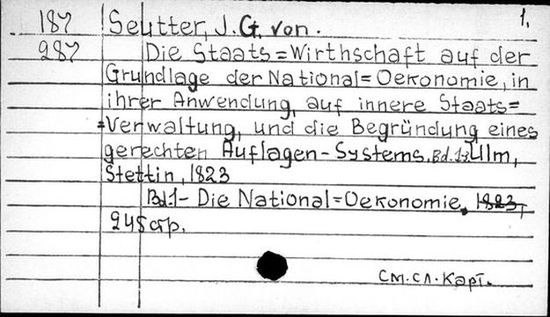 187 Seutter, J.G. von. 1.
287 Die Staats=Wirthschaft auf der
Grundlage der National=Oekonomie, in
ihrer Anwendung, auf innere Staats=
=Verwaltung, und die Begründung eines
gerechten Auflagen-Systems. Bd.1. Ulm,
Stettin, 1823
Bd.1- Die National=Oekonomie. 1823,
245 стр.
См. сл. карт.